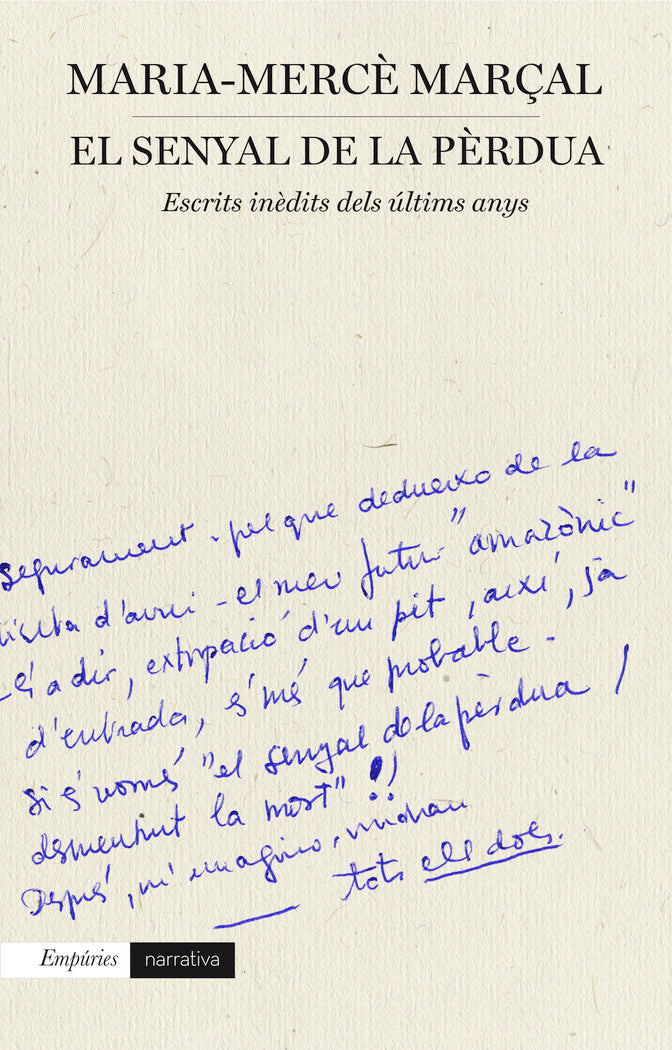 MARIA-MERCÈ MARÇAL
EL SENYAL DE LA PÈRDUA
Escrits inèdits dels últims anys
segurament - pel que dedueixo de la
visita d'avui - el meu futur "amazònic"
és a dir, extirpació d'un pit, així, ja
d'entrada, és més que probable -
Si és només "el senyal de la pèrdua /
desmentint la mort" !)
Després, m'imagino, vindran
tots els dols.
Empúries narrativa